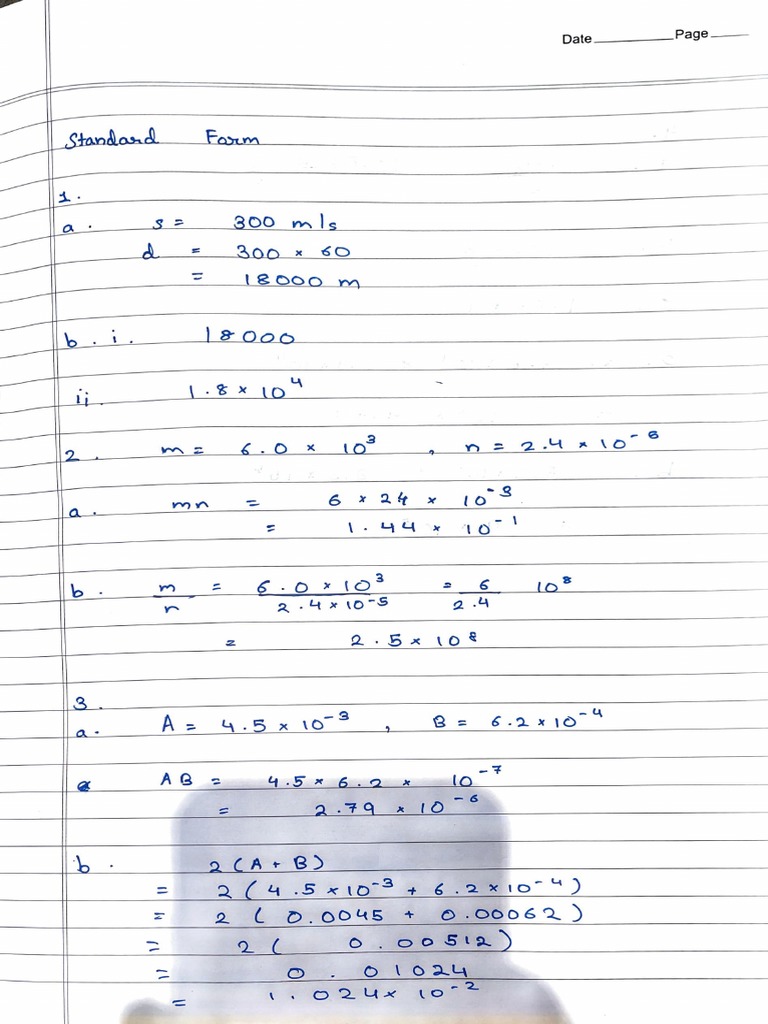 Date Page
Standard Form
1.
a. s = 300 m/s
d = 300 × 60
= 18000 m
b. i. 18000
ii. 1.8 × 10⁴
2. m = 6.0 × 10³ , n = 2.4 × 10⁻⁵
a. mn = 6 × 24 × 10⁻³
= 1.44 × 10⁻¹
b. m/n = 6.0 × 10³/2.4 × 10⁻⁵ = 6/2.4 10⁸
= 2.5 × 10⁸
3.
a. A = 4.5 × 10⁻³ , B = 6.2 × 10⁻⁴
AB = 4.5 × 6.2 × 10⁻⁷
= 2.79 × 10⁻⁶
b. 2 (A + B)
= 2 (4.5 × 10⁻³ + 6.2 × 10⁻⁴)
= 2 (0.0045 + 0.00062)
= 2 ( 0.00512)
= 0.01024
= 1.024 × 10⁻²